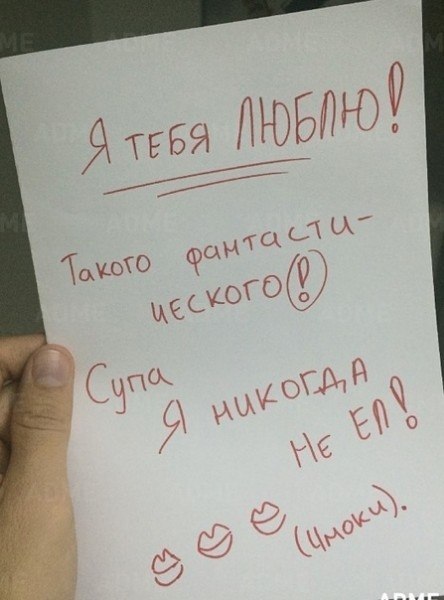 Я ТЕБЯ ЛЮБЛЮ!
Такого фантасти-
ческого(!)
Супа
Я никогда
Не ел!
(Чмоки).
ADME